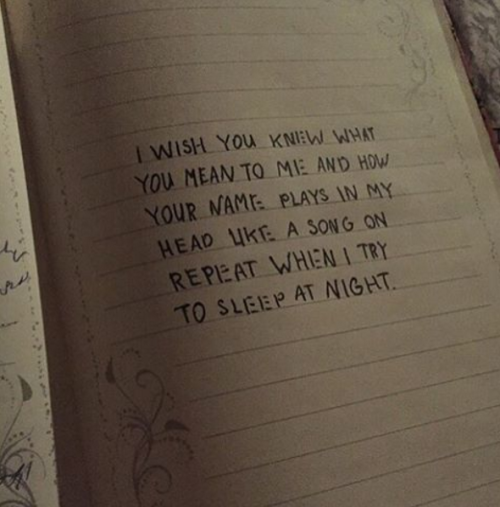 I WISH YOU KNEW WHAT
YOU MEAN TO ME AND HOW
YOUR NAME PLAYS IN MY
HEAD LIKE A SONG ON
REPEAT WHEN I TRY
TO SLEEP AT NIGHT.